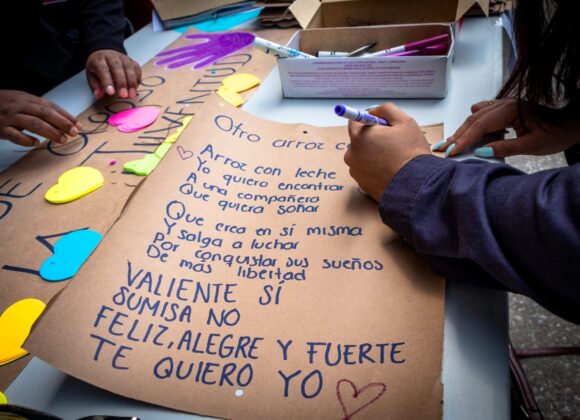 Otro arroz co
Arroz con leche
Yo quiero encontrar
A una compañera
Que quiera soñar
Que crea en sí misma
Y salga a luchar
Por conquistar sus sueños
De más libertad
VALIENTE SÍ
SUMISA NO
FELIZ, ALEGRE Y FUERTE
TE QUIERO YO